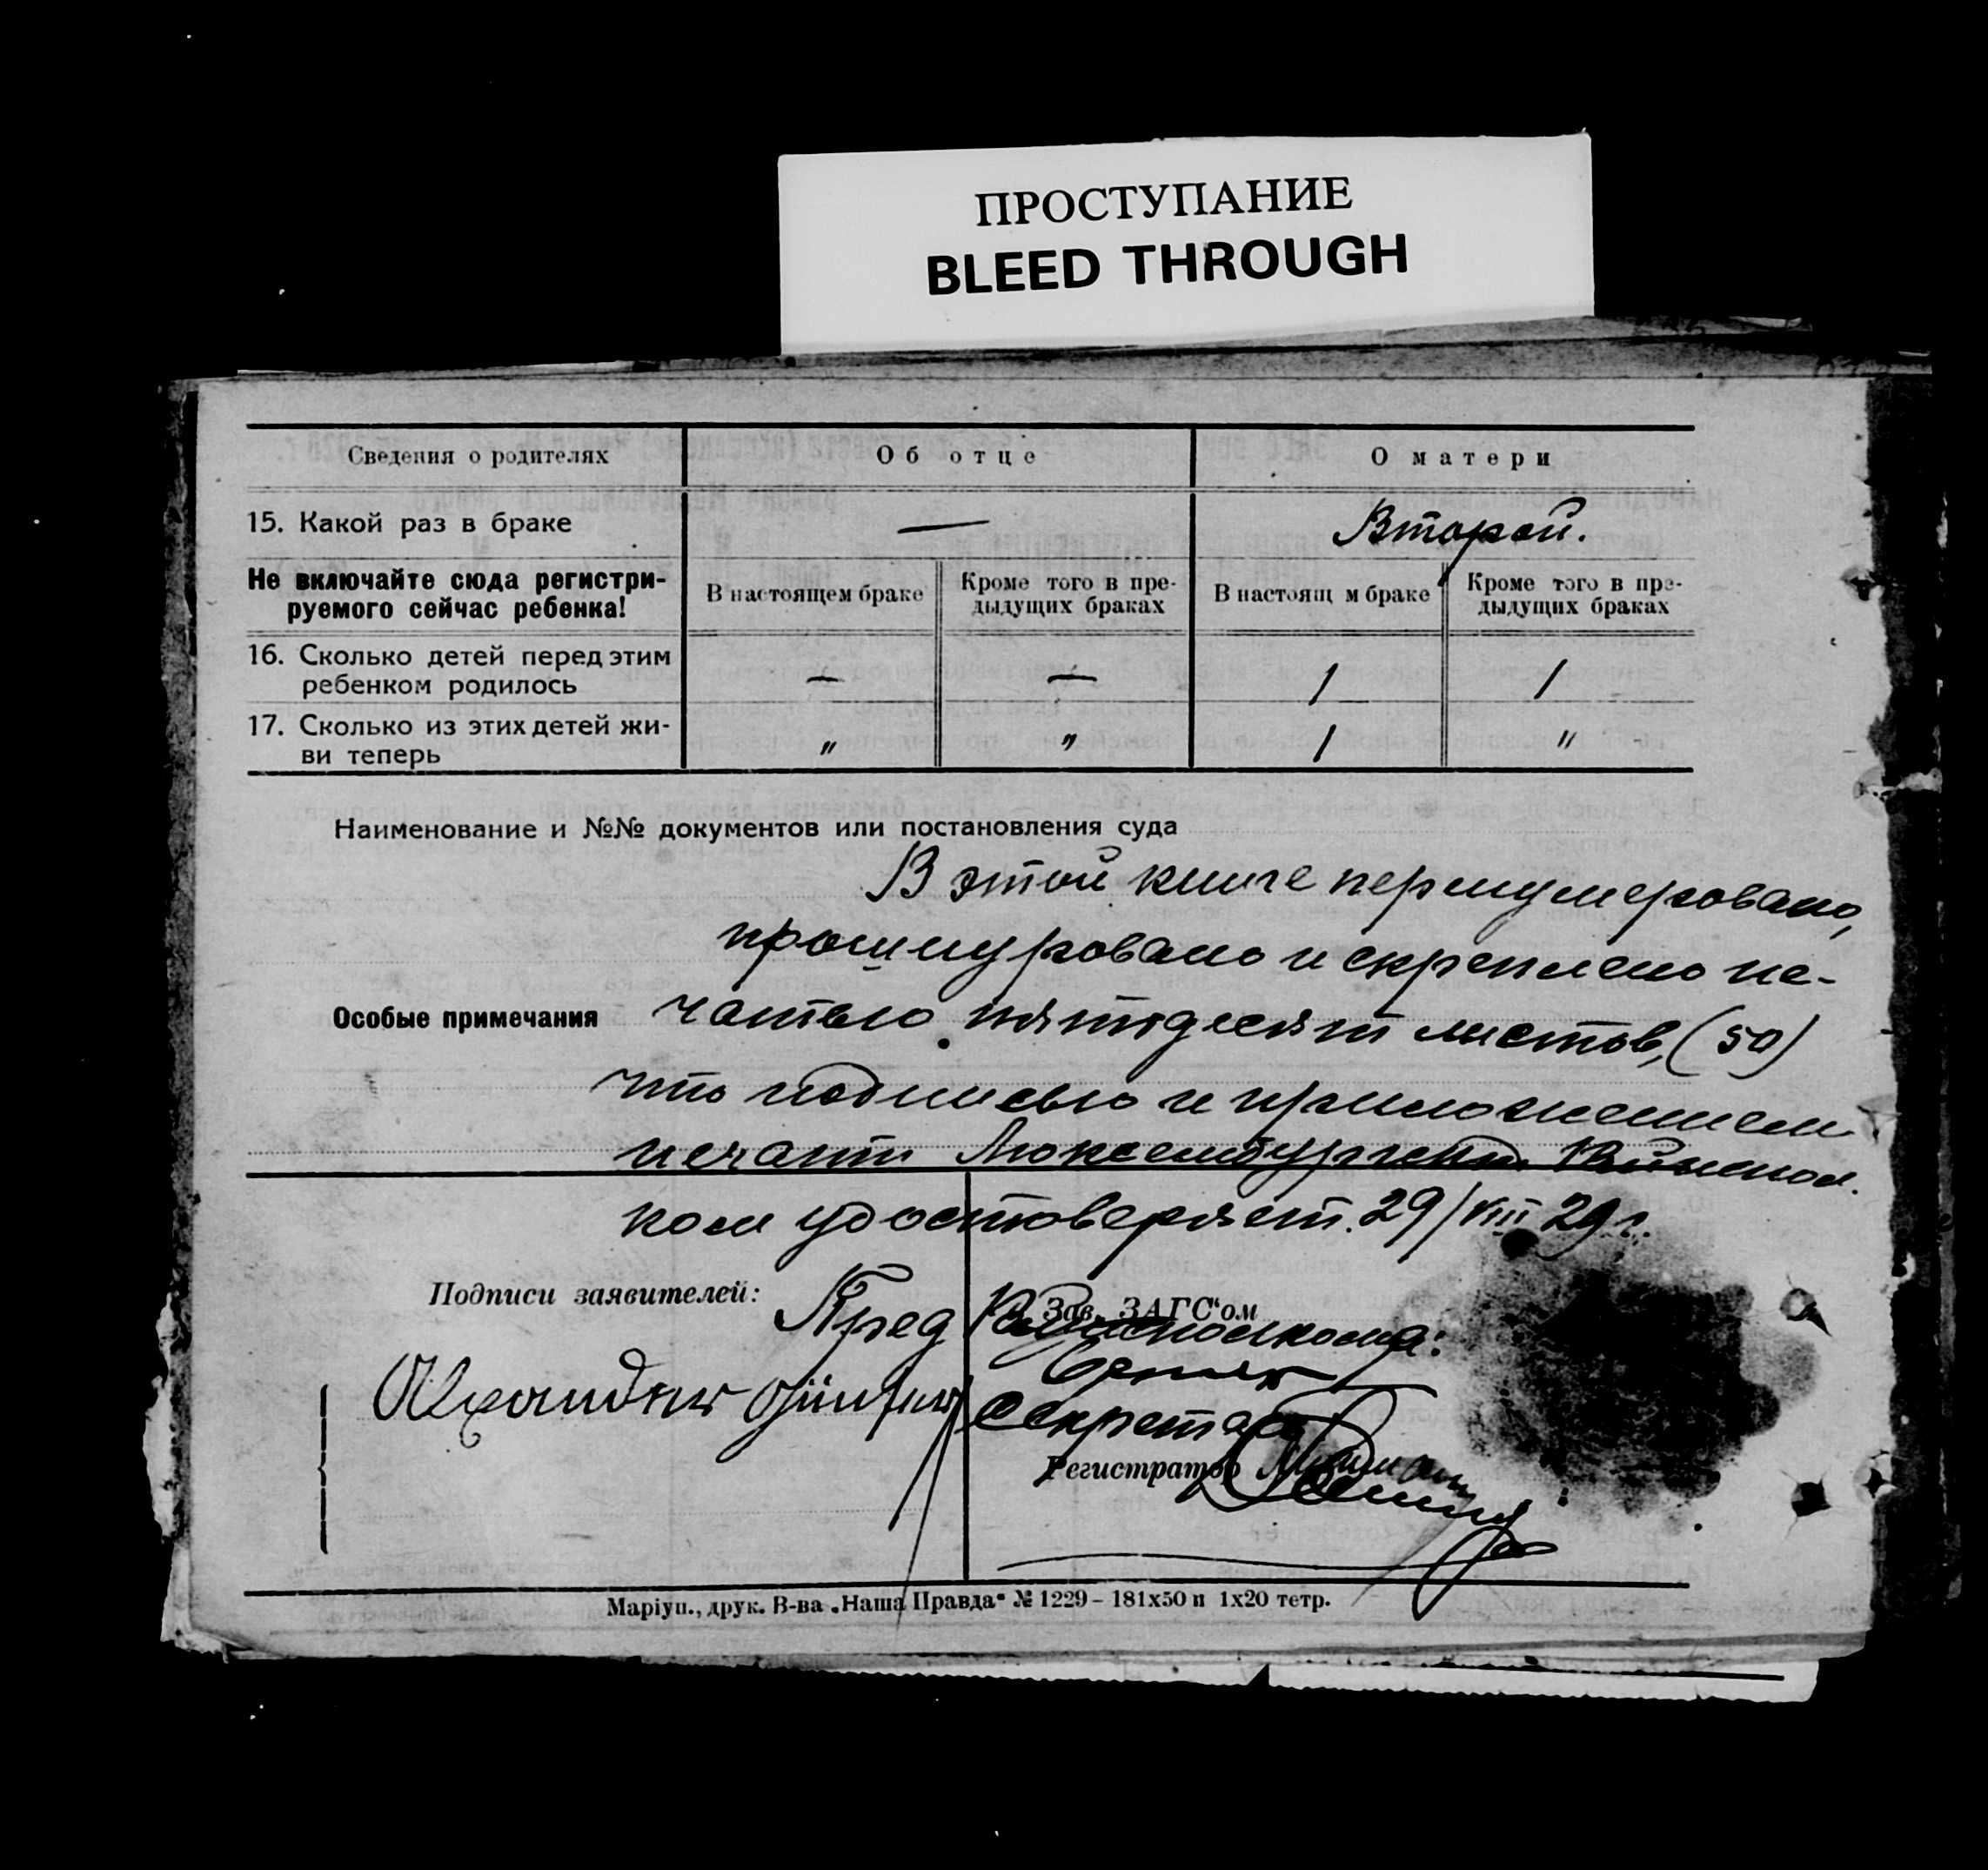 ПРОСТУПАНИЕ
BLEED THROUGH
Сведения о родителях Об отце О матери
15. Какой раз в браке — Второй.
Не включайте сюда регистри-
руемого сейчас ребенка!
В настоящем браке Кроме того в пре-
дыдущих браках В настоящ м браке Кроме того в пре-
дыдущих браках
16. Сколько детей перед этим
ребенком родилось — — 1 1
17. Сколько из этих детей жи-
ви теперь " " 1 "
Наименование и №№ документов или постановления суда
В этой книге перенумеровано,
прошнуровано и скреплено пе-
Особые примечания чатью пятьдесят листов, (50)
что подписью и приложением
печати Люксембургский Райиспол.
ком удостоверяет. 29/VIII 29 г.
Подписи заявителей: Зав. ЗАГС'ом
Пред Райисполкома:
Alexander Günther
Секретарь
Регистратор
Маріуп., друк. В-ва „Наша Правда" № 1229 – 181х50 и 1х20 тетр.